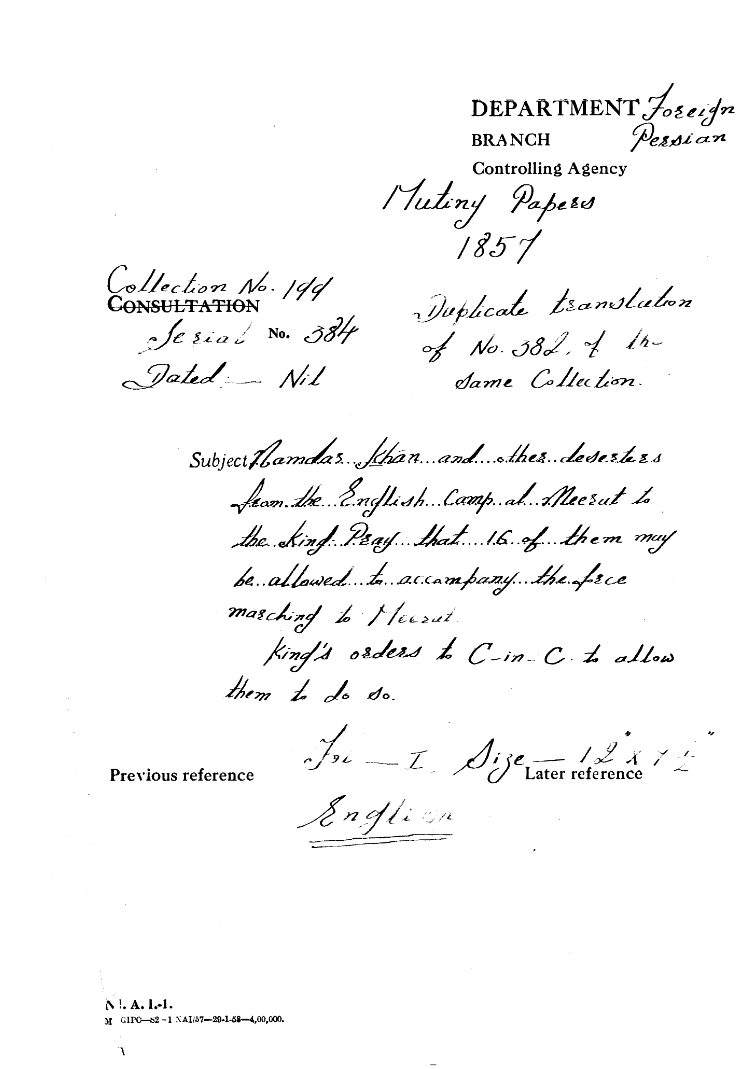 DEPARTMENT Foreign
BRANCH Persian
Controlling Agency
Mutiny Papers
1857
Collection No. 199
CONSULTATION
Serial No. 384
Dated — Nil
Duplicate translation
of No. 382, of the
same Collection.
Subject Namdar Khan and other deserters
from the English Camp at Meerut to
the King Pray that 16 of them may
be allowed to accompany the force
marching to Meerut.
King's orders to C-in-C to allow
them to do so.
— I. Size — 12" x 7
Previous reference
Later reference
English
N. A. I.-1.
M GIPC—S2—1 NAI/57—29-1-58—4,00,000.